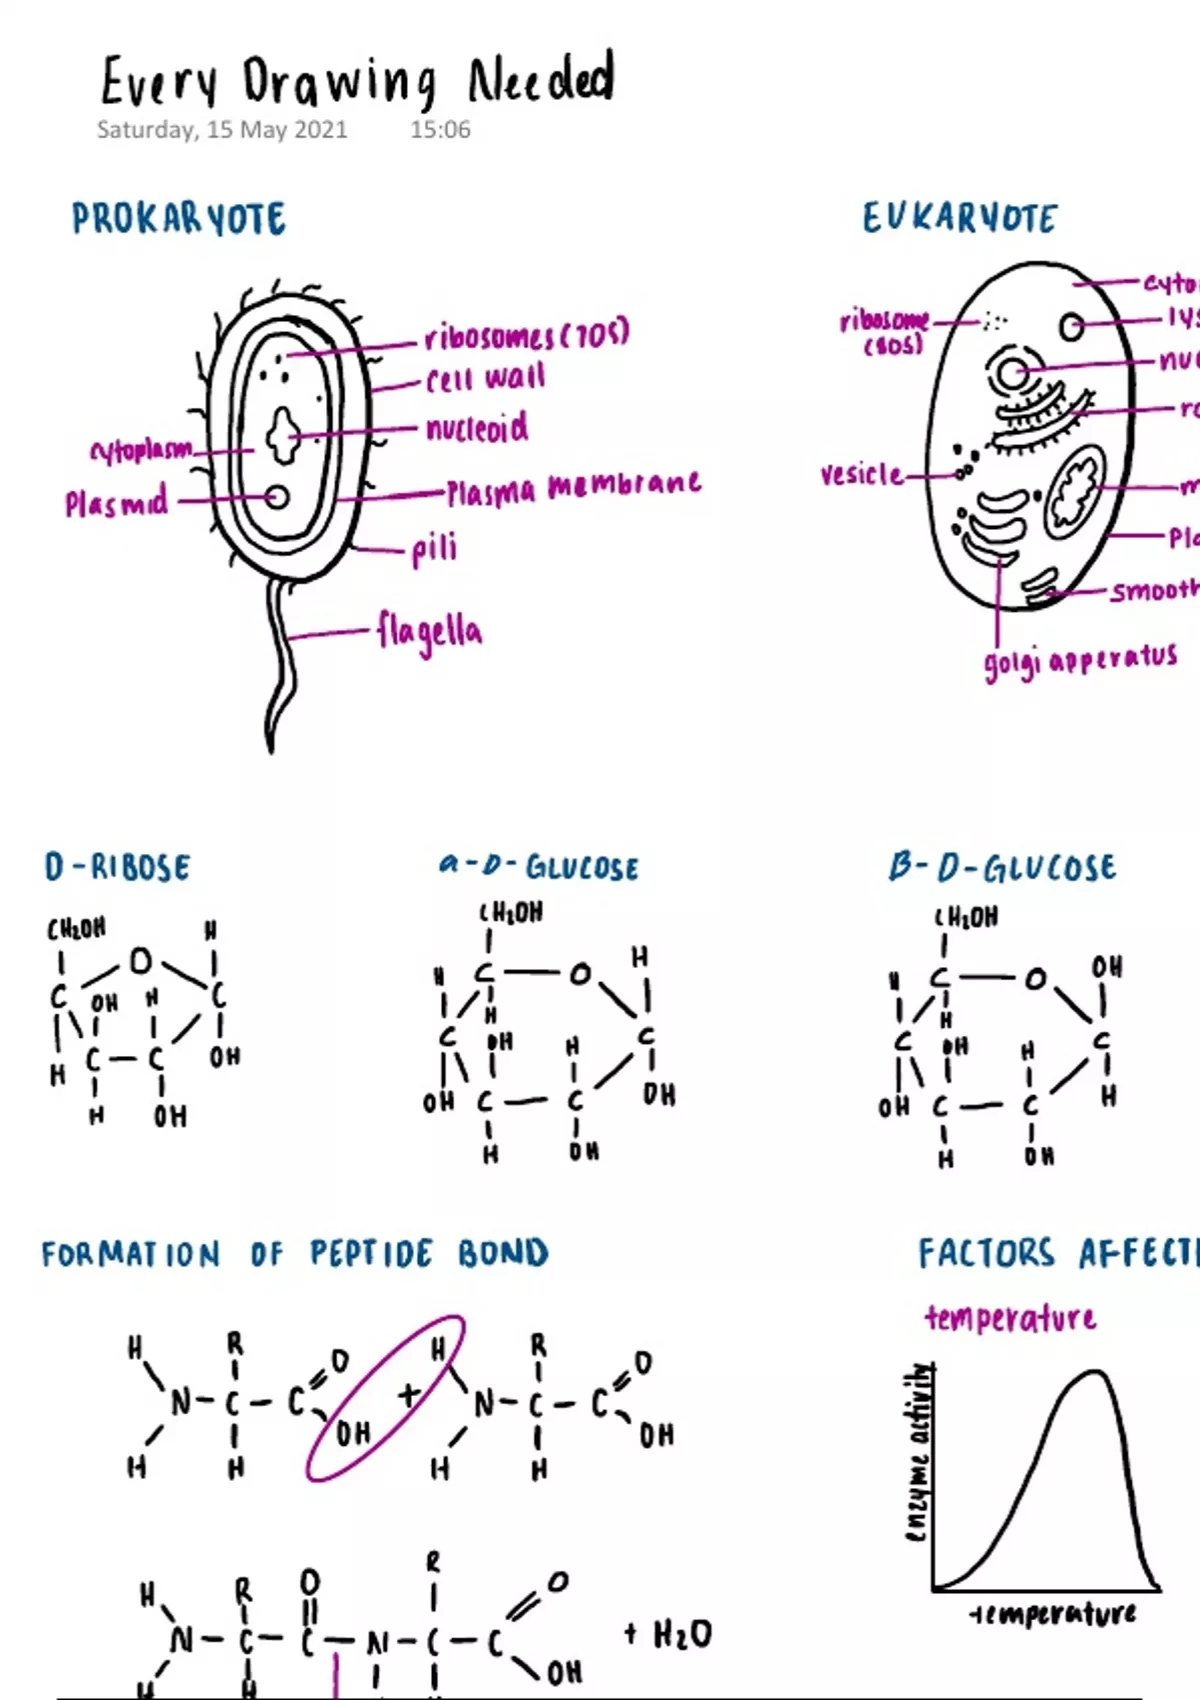 Every Drawing Needed
Saturday, 15 May 2021 15:06
PROKARYOTE
ribosomes (70S)
cell wall
nucleoid
cytoplasm
Plasmid
Plasma membrane
pili
flagella
EUKARYOTE
cyto
ribosome
(80S)
lys
nuc
ro
vesicle
m
Pla
smooth
golgi apperatus
D-RIBOSE
CH2OH
H
O
C
OH
H
C
H
C
C
OH
H
OH
a-D-GLUCOSE
CH2OH
H
H
C
O
H
C
OH
H
C
OH
C
C
OH
H
OH
B-D-GLUCOSE
CH2OH
OH
H
C
O
H
C
OH
H
C
OH
C
C
H
H
OH
FORMATION OF PEPTIDE BOND
H
R
O
H
R
O
N-C-C
+
N-C-C
OH
OH
H
H
H
H
H
R
O
R
O
N-C-C-N-C-C
+ H2O
OH
H
H
FACTORS AFFECTI
temperature
enzyme activity
temperature